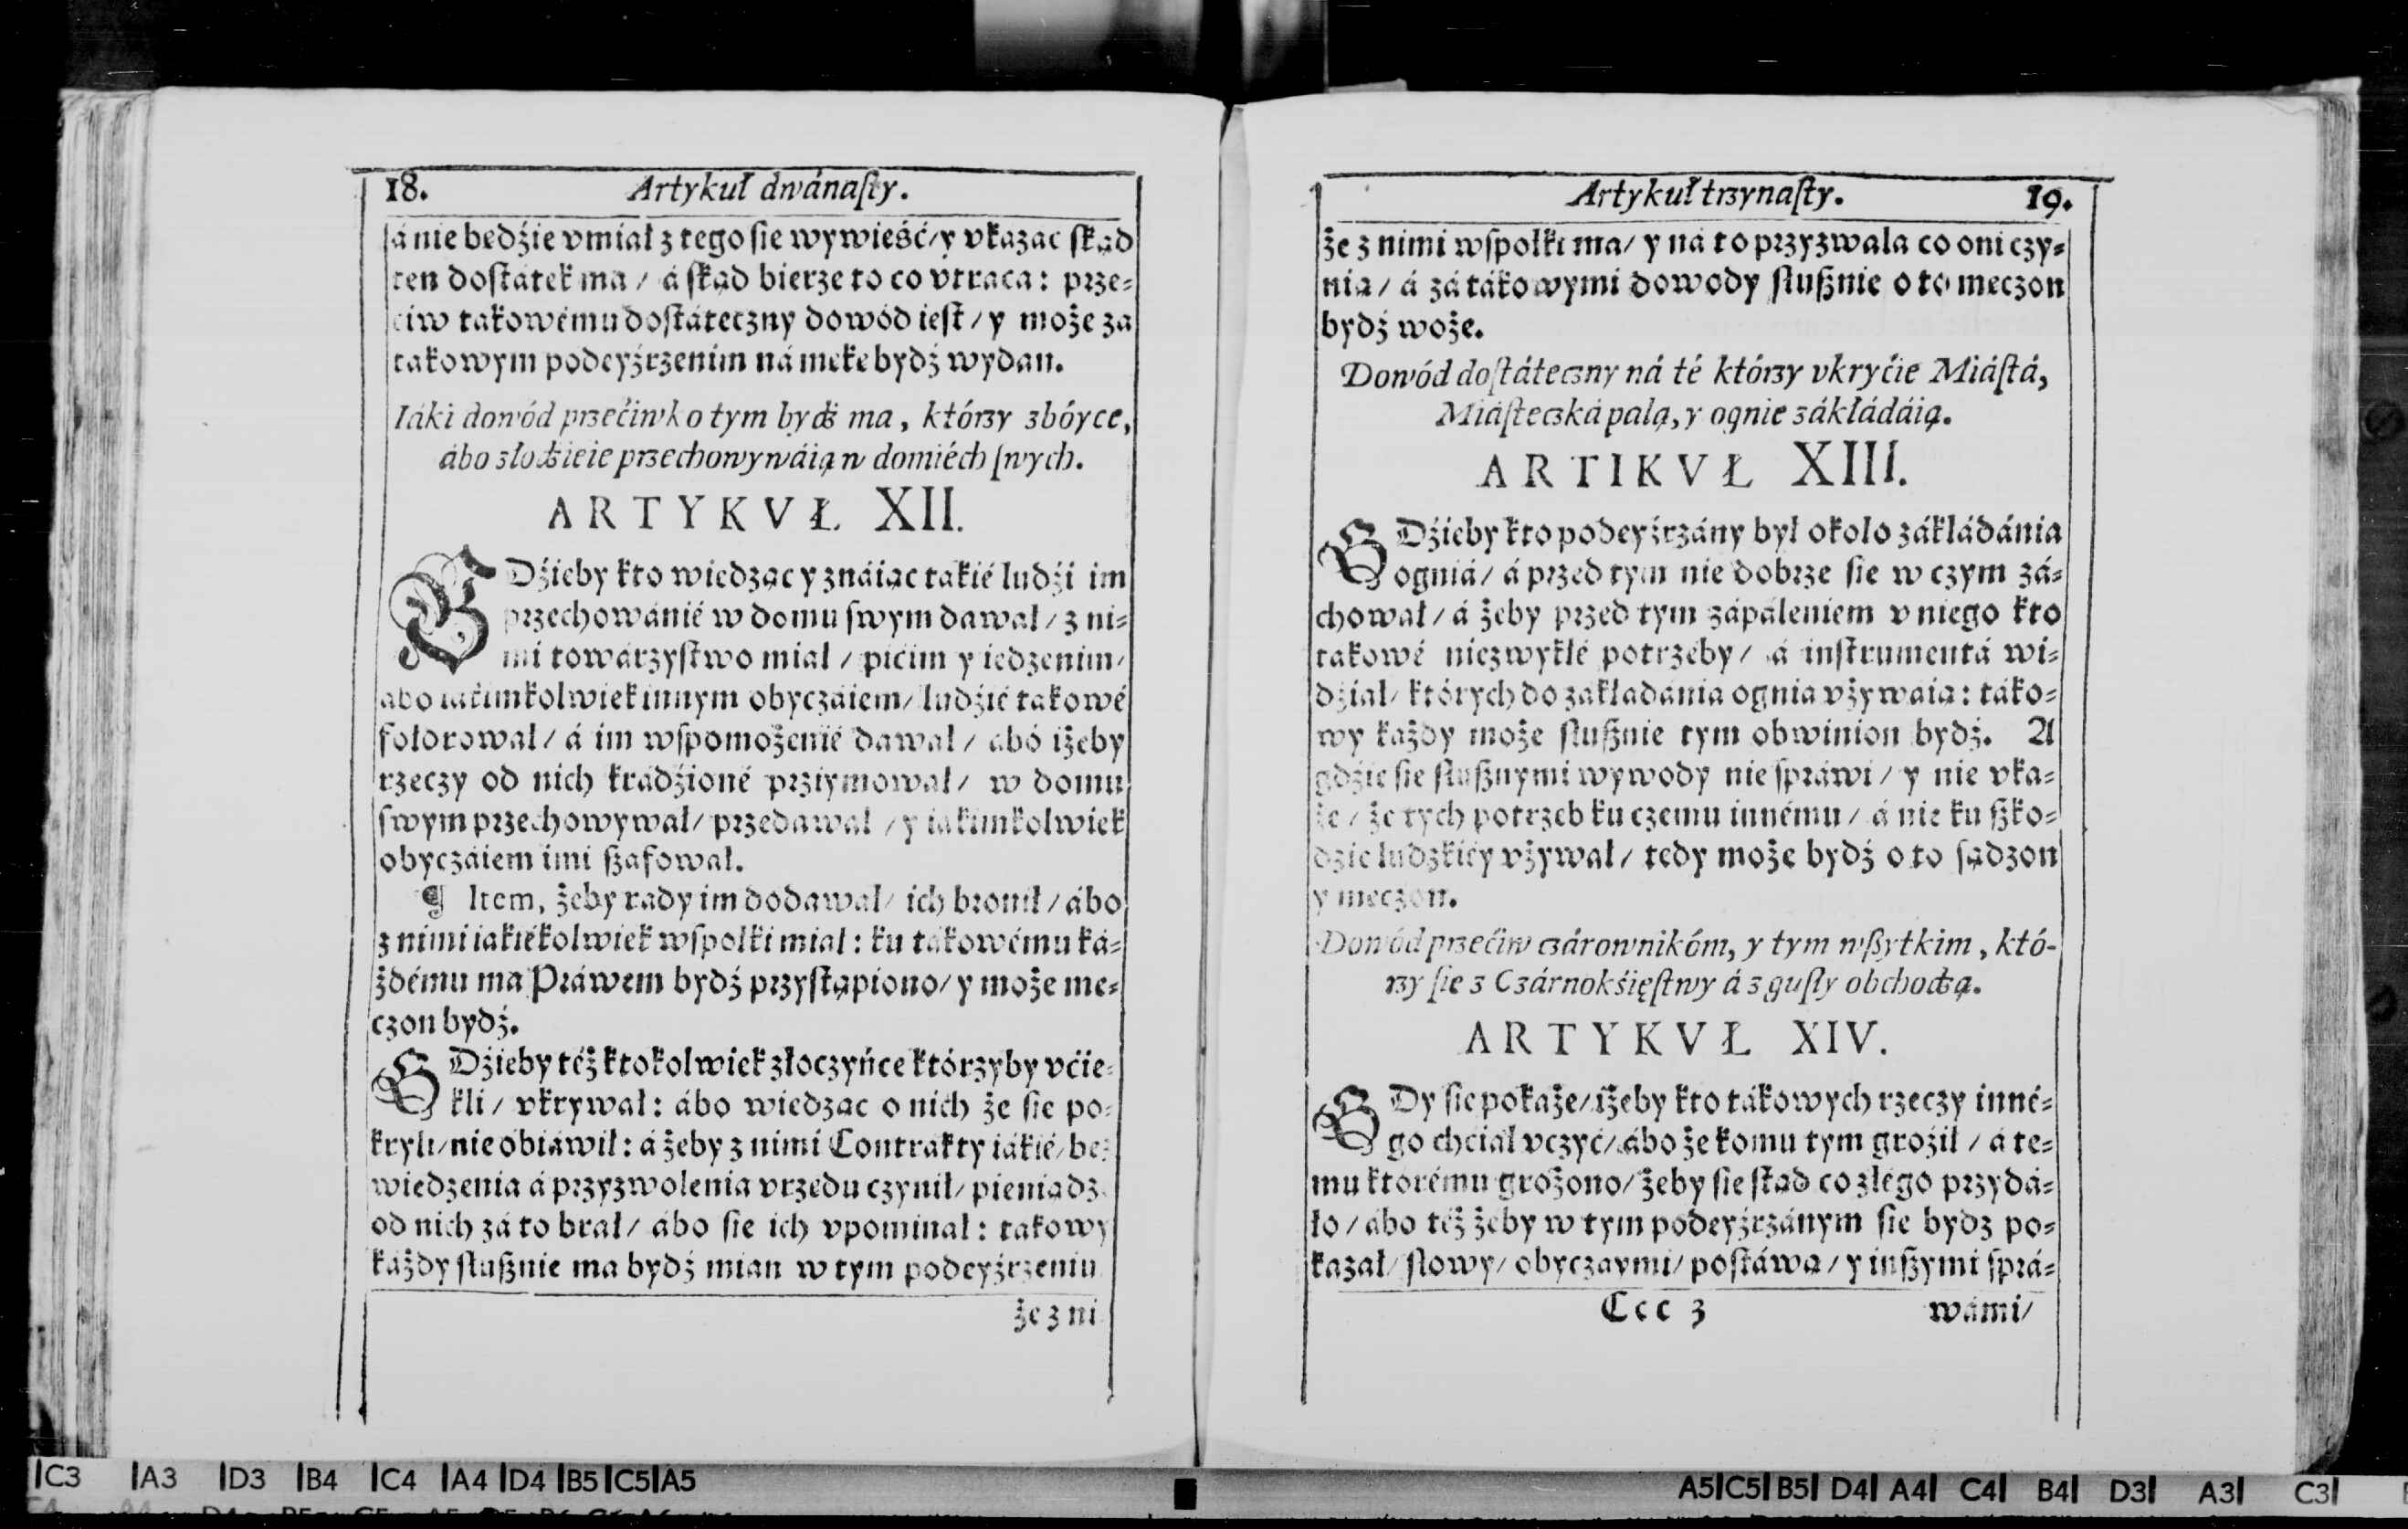 18. Artykuł dwánaſty.
á nie bedźie vmiał z tego ſie wywieść/ y vkazac ſkąd
ten doſtátek ma / á ſkąd bierze to co vtraca: prze-
ciw takowému doſtáteczny dowód ieſt / y może za
takowym podeyźrzenim ná meke bydź wydan.
Iáki dowód przećiwko tym bydź ma, którzy zbóyce,
ábo złodźieie przechowywáią w domiéch ſwych.
ARTYKVŁ XII.
GDźieby kto wiedząc y znáiąc takié ludźi im
przechowánié w domu ſwym dawał / z ni-
mi towárzyſtwo miał / pićim y iedzenim/
ábo iakimkolwiek innym obyczáiem/ ludźié takowé
folorował / á im wſpomożenié dawał / abó iżeby
rzeczy od nich kradźioné prziymował / w domu
ſwym przechowywał/ przedawał / y iakimkolwiek
obyczáiem imi ſzafował.
¶ Item, żeby rady im dodawał/ ich bronił / ábo
z nimi iakiékolwiek wſpołki miał: ku tákowému ká-
żdému ma Práwem bydź przyſtąpiono/ y może me-
czon bydź.
GDźieby téż ktokolwiek złoczyńce którzyby vćie-
kli / vkrywał: ábo wiedząc o nich że ſie po-
kryli/ nie obiáwił: á żeby z nimi Contrakty iákié/ bez
wiedzenia á przyzwolenia vrzedu czynił/ pieniądz
od nich zá to brał/ ábo ſie ich vpominał: takowy
káżdy ſłuſznie ma bydź mian w tym podeyźrzeniu
że z ni
Artykuł trzynaſty. 19.
że z nimi wſpołki ma/ y ná to przyzwala co oni czy-
nią / á zá tákowymi dowody ſłuſznie o to meczon
bydź woże.
Dowód doſtáteczny ná té którzy vkryćie Miáſtá,
Miáſteczká palą, y ognie zákłádáią.
ARTIKVŁ XIII.
GDźieby kto podeyźrzány był około zákłádánia
ogniá/ á przed tym nie dobrze ſie w czym zá-
chował / á żeby przed tym zápáleniem v niego kto
takowé niezwykłé potrzeby/ á inſtrumentá wi-
dźiał/ których do zakładánia ognia vżywaią: táko-
wy każdy może ſłuſznie tym obwinion bydź. A
gdźie ſie ſłuſznymi wywody nie ſpráwi / y nie vka-
że / że tych potrzeb ku czemu innému / á nie ku ſzko-
dzie ludzkiéy vżywał/ tedy może bydź o to ſądzon
y meczon.
Dowód przećiw czárownikóm, y tym wſzytkim, któ-
rzy ſie z Czárnokśięſtwy á z guſły obchodzą.
ARTYKVŁ XIV.
GDy ſie pokaże/ iżeby kto tákowych rzeczy inné-
go chciał vczyć/ ábo że komu tym groził / á te-
mu ktorému grożono/ żeby ſie ſtąd co złégo przydá-
ło / ábo téż żeby w tym podeyźrzánym ſie bydz po-
kazał/ ſłowy/ obyczaymi/ poſtáwą/ y inſzymi ſprá-
Ccc 3 wámi/
C3 A3 D3 B4 C4 A4 D4 B5 C5 A5
A5 C5 B5 D4 A4 C4 B4 D3 A3 C3